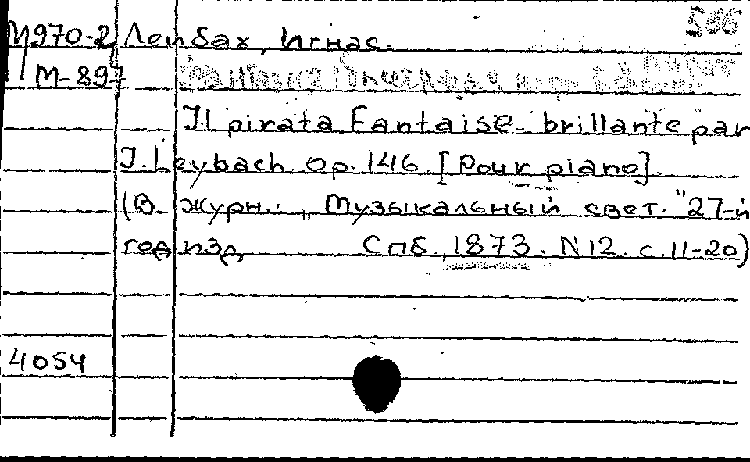 М970-2 Лейбах, Игнас.
М-897
Il pirata Fantaisie brillante par
J. Leybach op. 146. [Pour piano]
(В журн.: „Музыкальный свет." 27-й
год изд Спб. 1873. N12. с. 11-20)
4054